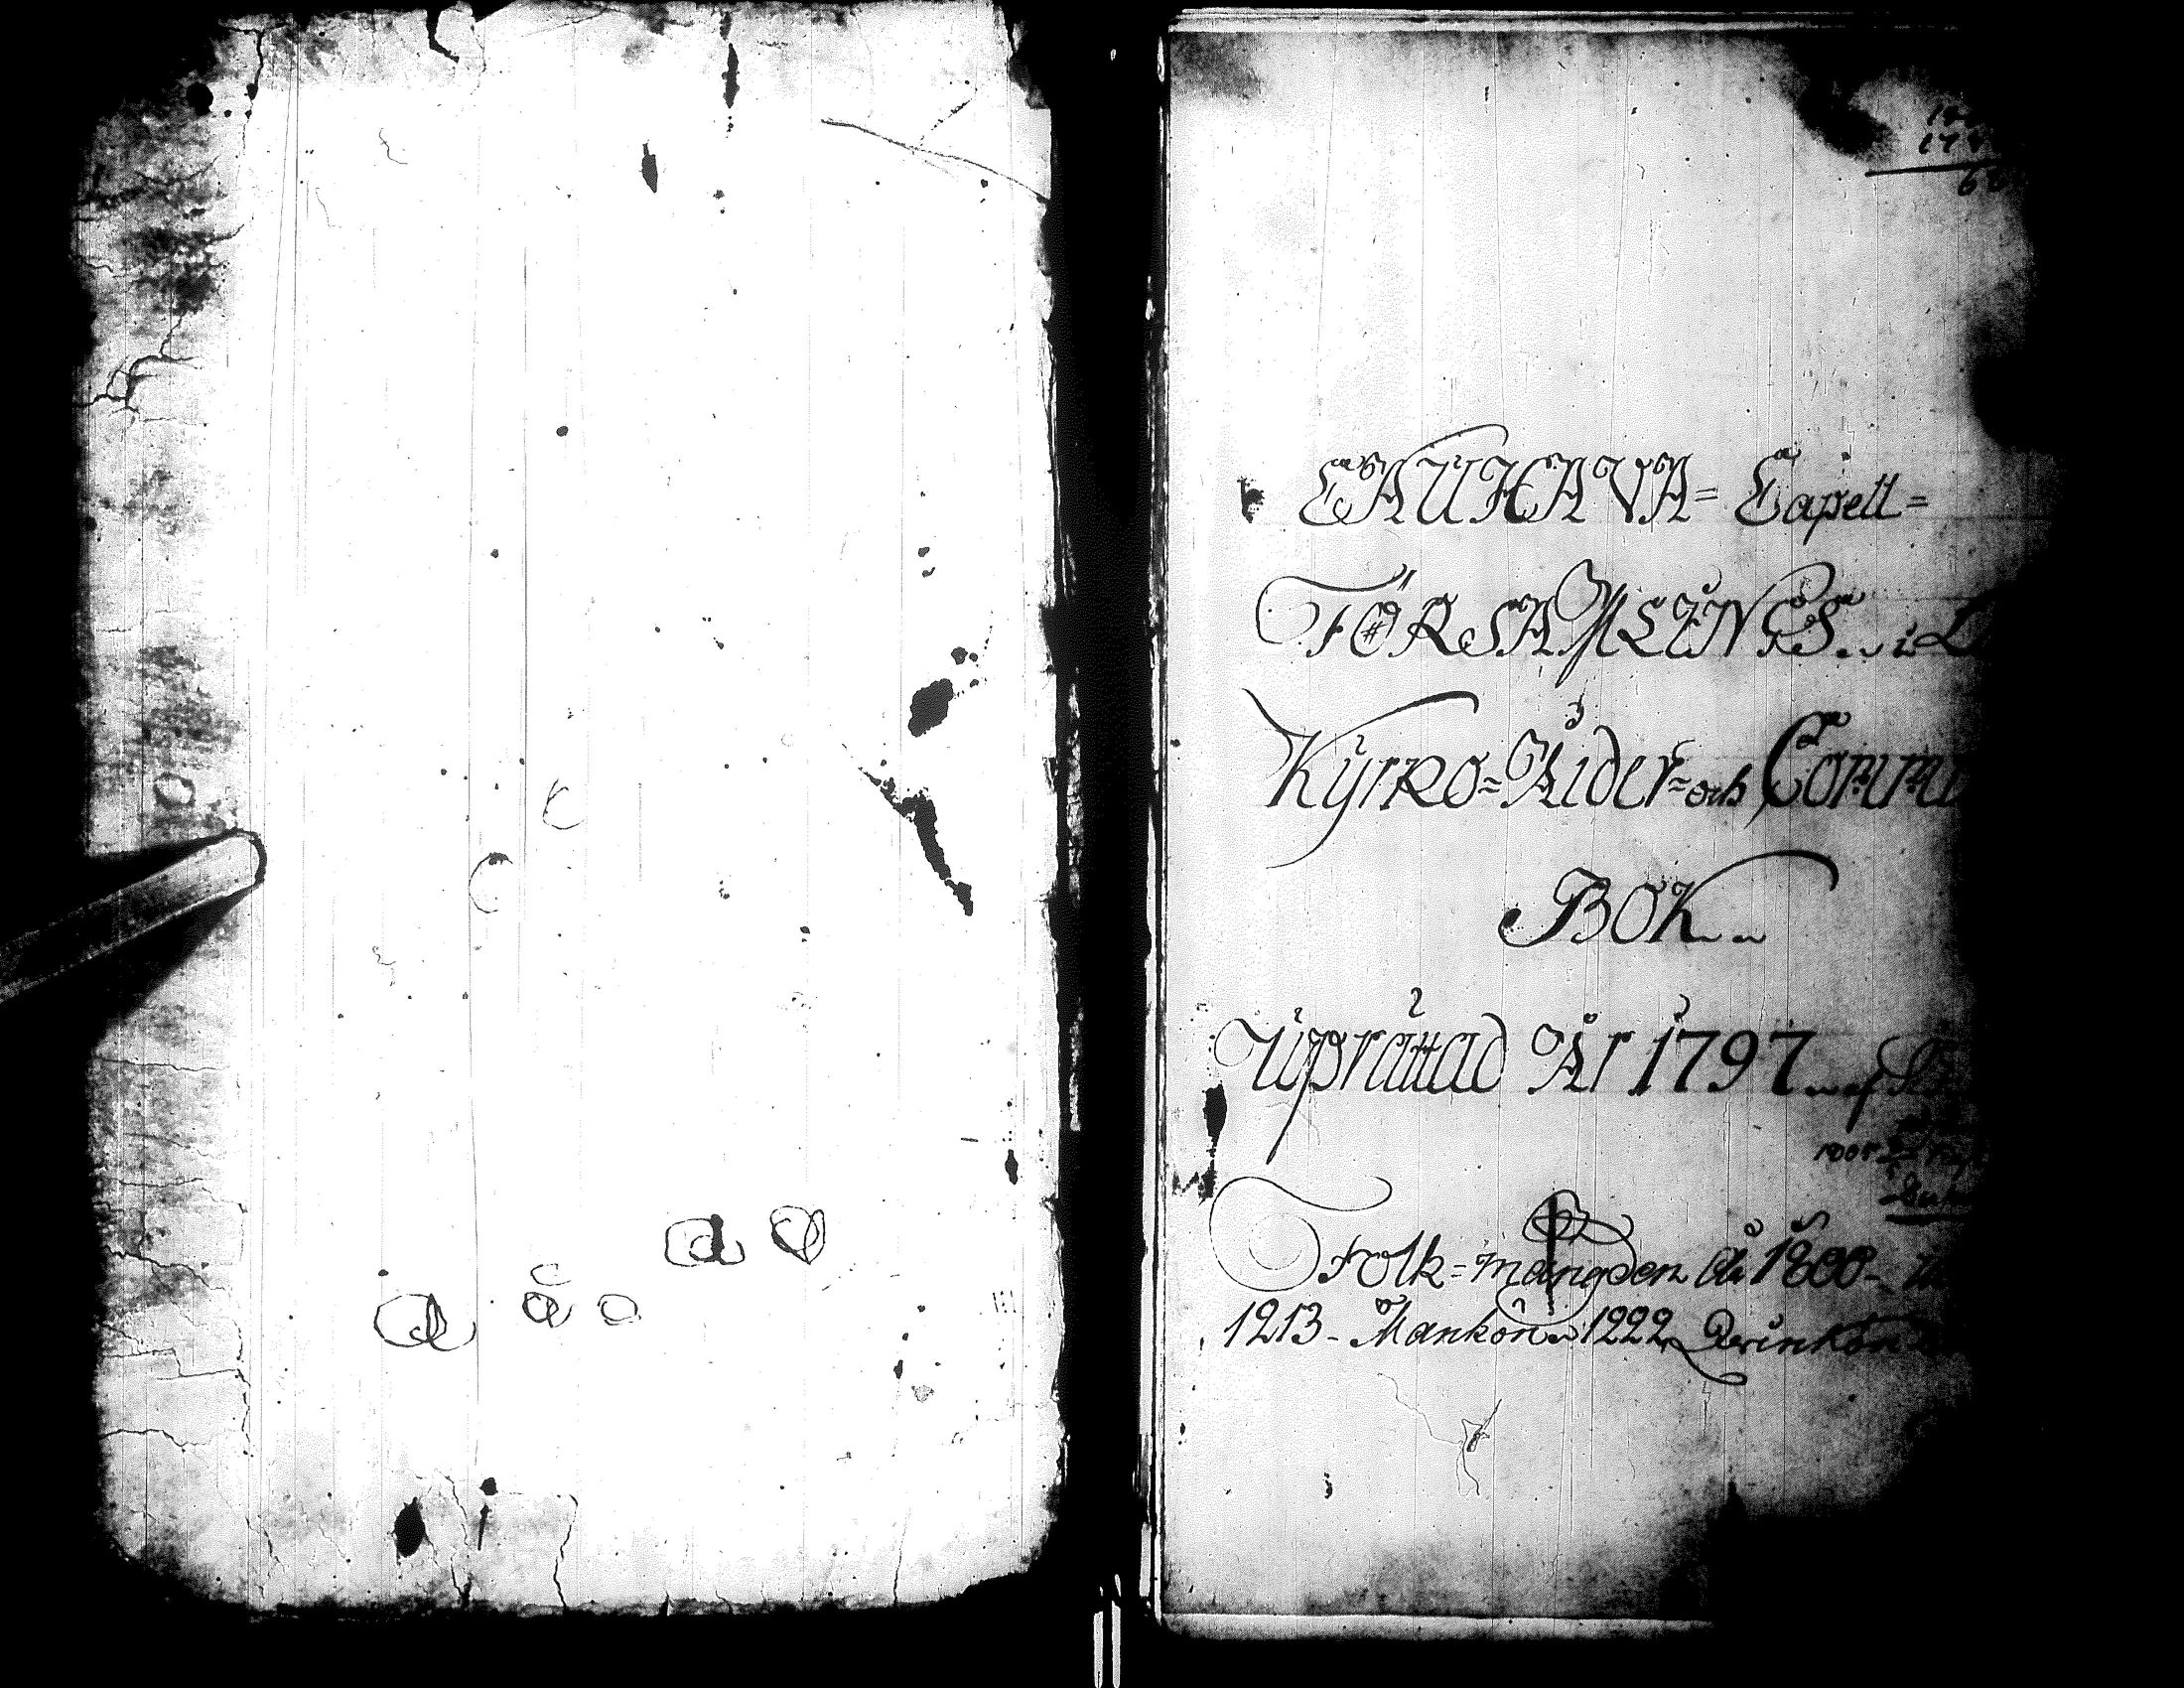 a å o a
LAUKAVA= Capell=
FÖRSAMLINGS.. i
Kyrko=Tider=och Commu
BOK..
Uprättad År 1797.. af
Folk=mängden År 1800-
1213- Mankön.. 1222 Qvinkön